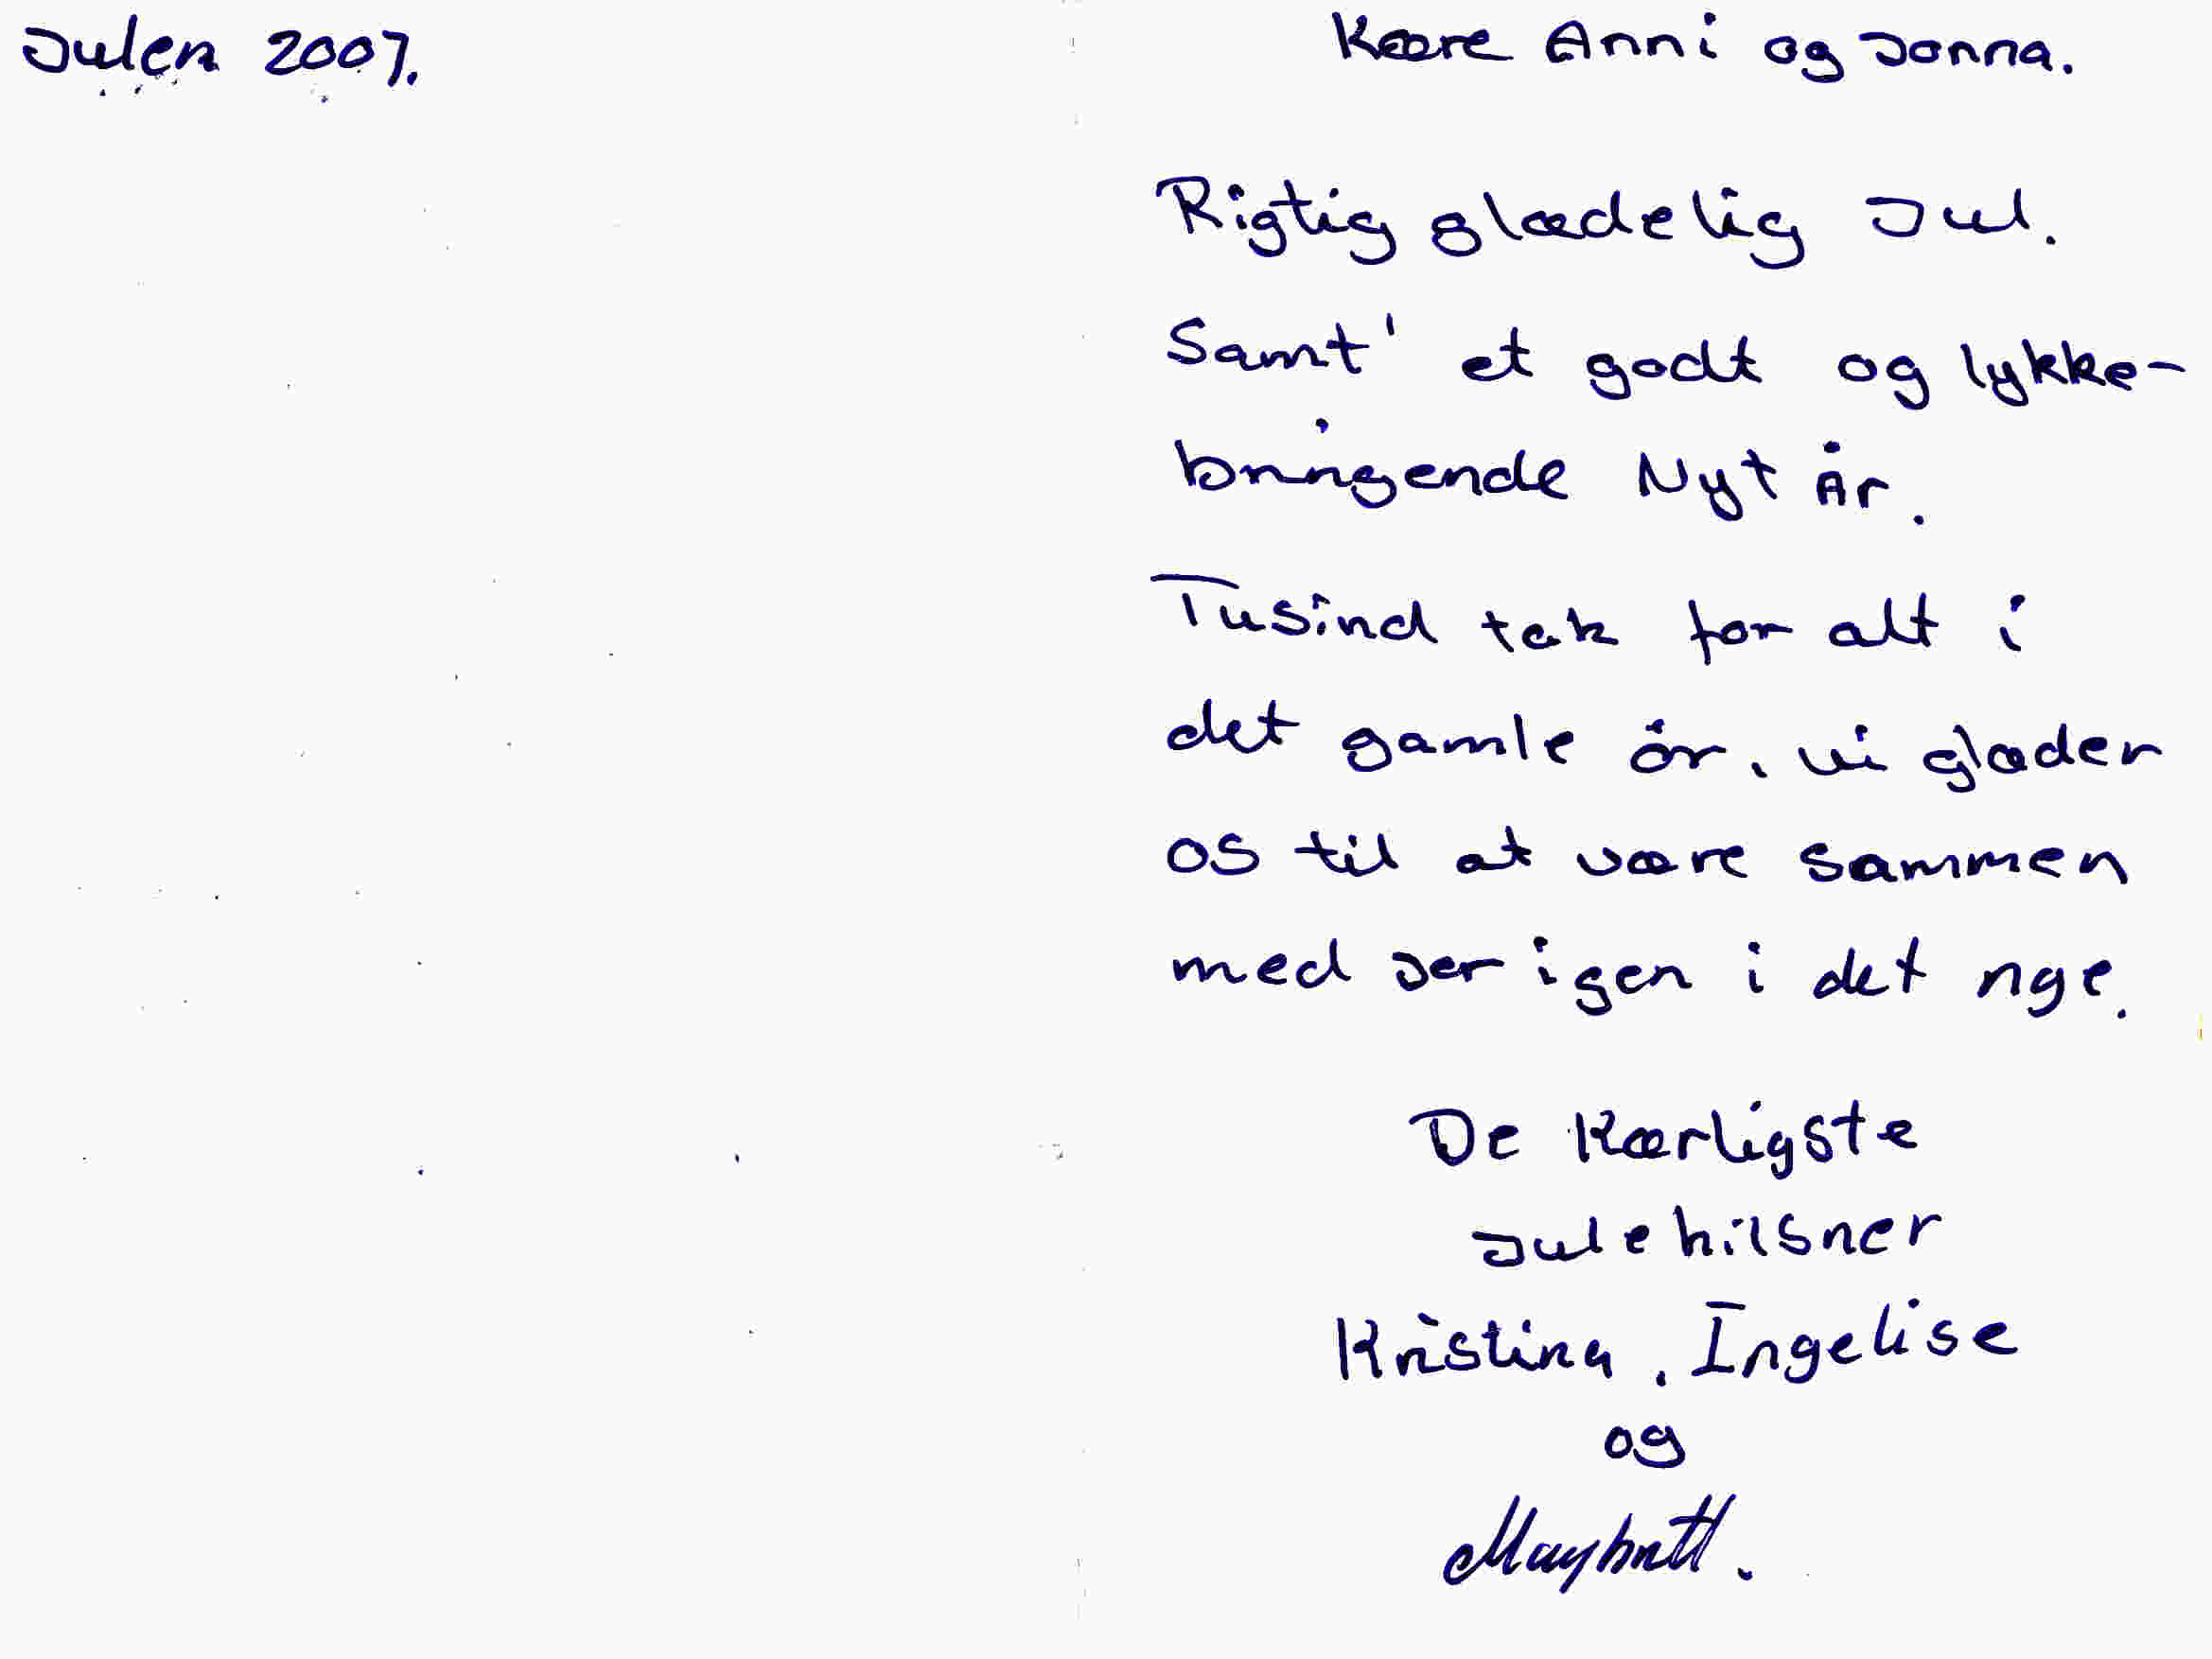 Julen 2007.
Kære Anni og Jonna.
Rigtig glædelig Jul.
Samt' et godt og lykke-
bringende Nyt År.
Tusind tak for alt i
det gamle år, vi glæder
os til at være sammen
med Jer igen i det nye.
De Kærligste
Julehilsner
Kristina, Ingelise
og
Maybritt.